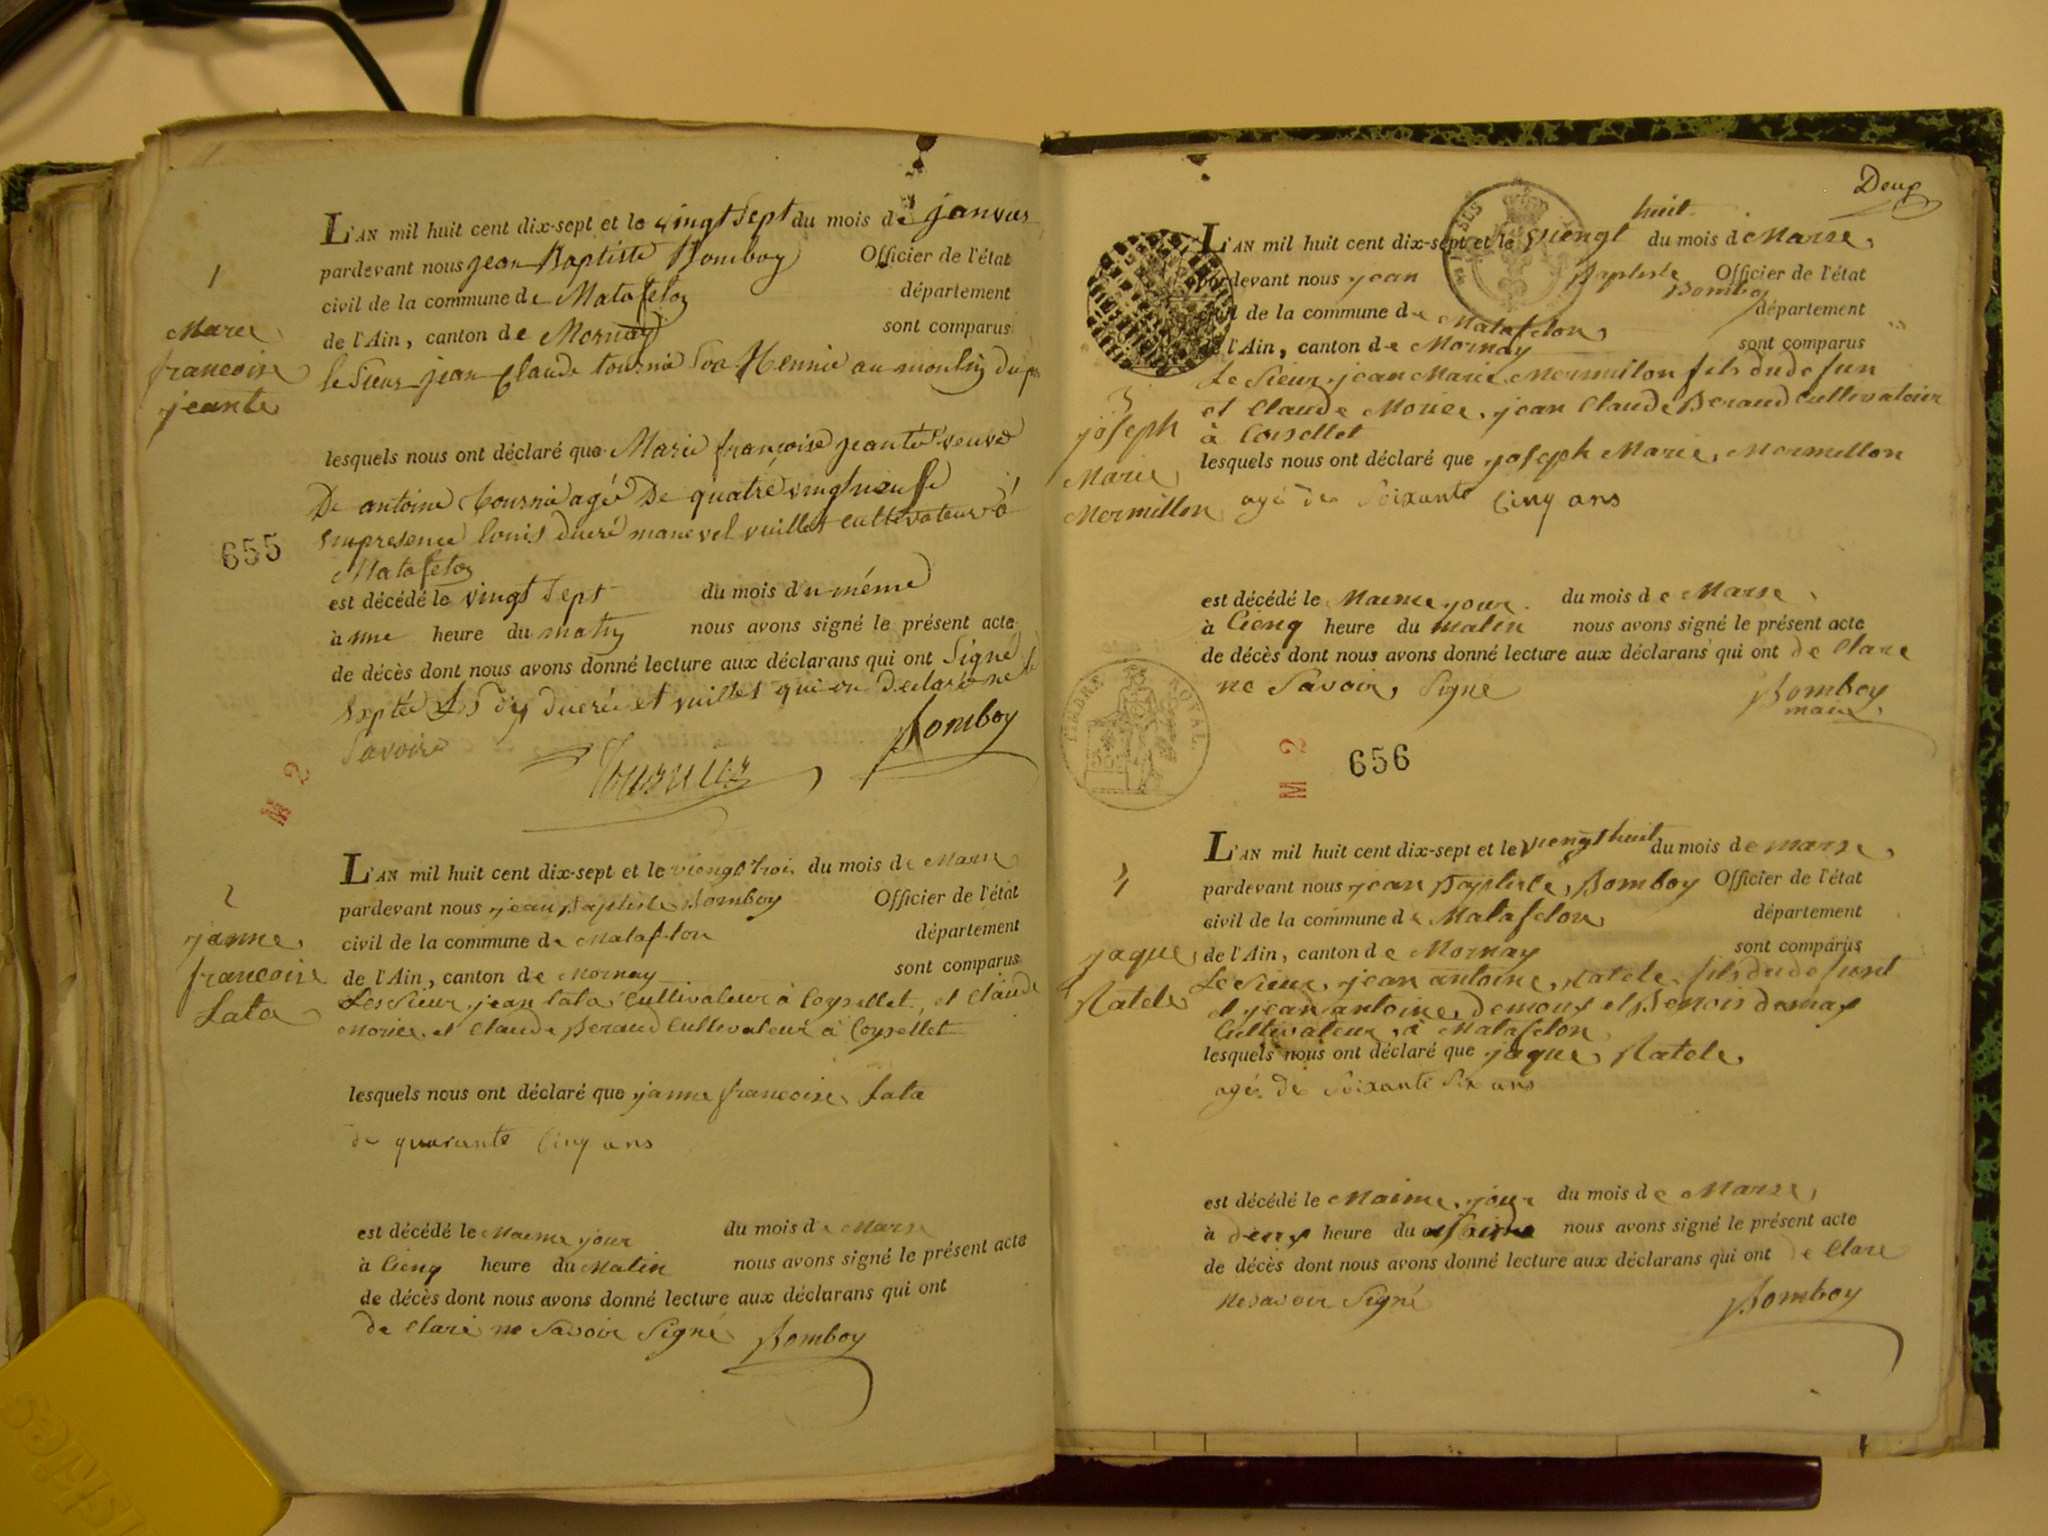 1
Marie
francoise
jeante
L'AN mil huit cent dix-sept et le vingt sept du mois de janvier
pardevant nous jean Baptiste Bomboy Officier de l'état
civil de la commune de Matafelon département
de l'Ain, canton de Mornay sont comparus
le sieur jean Claude tournie au moulin du
lesquels nous ont déclaré que Marie françoise jeanté veuve
De antoine tournie agée De quatre vingt neuf
louis ducré vuillet cultivateur à
Matafelon
est décédé le vingt sept du mois du même
à une heure du matin nous avons signé le présent acte
de décès dont nous avons donné lecture aux déclarans qui ont Signé
ducré et vuillet qui on declaré ne
Savoire
Bomboy
655
M 2
2
janne
francoise
Lata
L'AN mil huit cent dix-sept et le viengt trois du mois de Marse
pardevant nous jean Baptiste Bomboy Officier de l'état
civil de la commune de Matafelon département
de l'Ain, canton de Mornay sont comparus
Le Sieur jean Lata Cultivateur à Coysellet, et Claude
Morier et Claude Beraud Cultivateur à Coysellet
lesquels nous ont déclaré que janne francoise Lata
de quarante Cinq ans
est décédé le Maeme jour du mois de Marse
à Cienq heure du Matin nous avons signé le présent acte
de décès dont nous avons donné lecture aux déclarans qui ont
de Claré ne Savoir Signé Bomboy
Deux
3
joseph
Marie
Mermillon
L'AN mil huit cent dix-sept et le viengt huit du mois de Marse
pardevant nous jean Baptiste Bomboy Officier de l'état
civil de la commune de Matafelon département
de l'Ain, canton de Mornay sont comparus
Le Sieur jean Marie Mermilon fils du defun
et Claude Morier, jean Claude Beraud Cultivateur
à Coisellet
lesquels nous ont déclaré que joseph Marie Mermillon
agé de Soixante Cinq ans
est décédé le Maeme jour du mois de Marse
à Cienq heure du matin nous avons signé le présent acte
de décès dont nous avons donné lecture aux déclarans qui ont de Clare
ne Savoir Signe Bomboy
maire
TIMBRE ROYAL
M 2
656
4
jaque
Ratele
L'AN mil huit cent dix-sept et le viengt huit du mois de marse
pardevant nous jean Baptiste Bomboy Officier de l'état
civil de la commune de Matafelon département
de l'Ain, canton de Mornay sont comparus
Le Sieur jean antoine Ratele fils du defunt
et jean antoine et Benoit
Cultivateur à Matafelon
lesquels nous ont déclaré que jaque Ratele
agé de Soixante Six ans
est décédé le Maime jour du mois de Marse
à deux heure du nous avons signé le présent acte
de décès dont nous avons donné lecture aux déclarans qui ont de Clare
ne savoir Signé
Bomboy